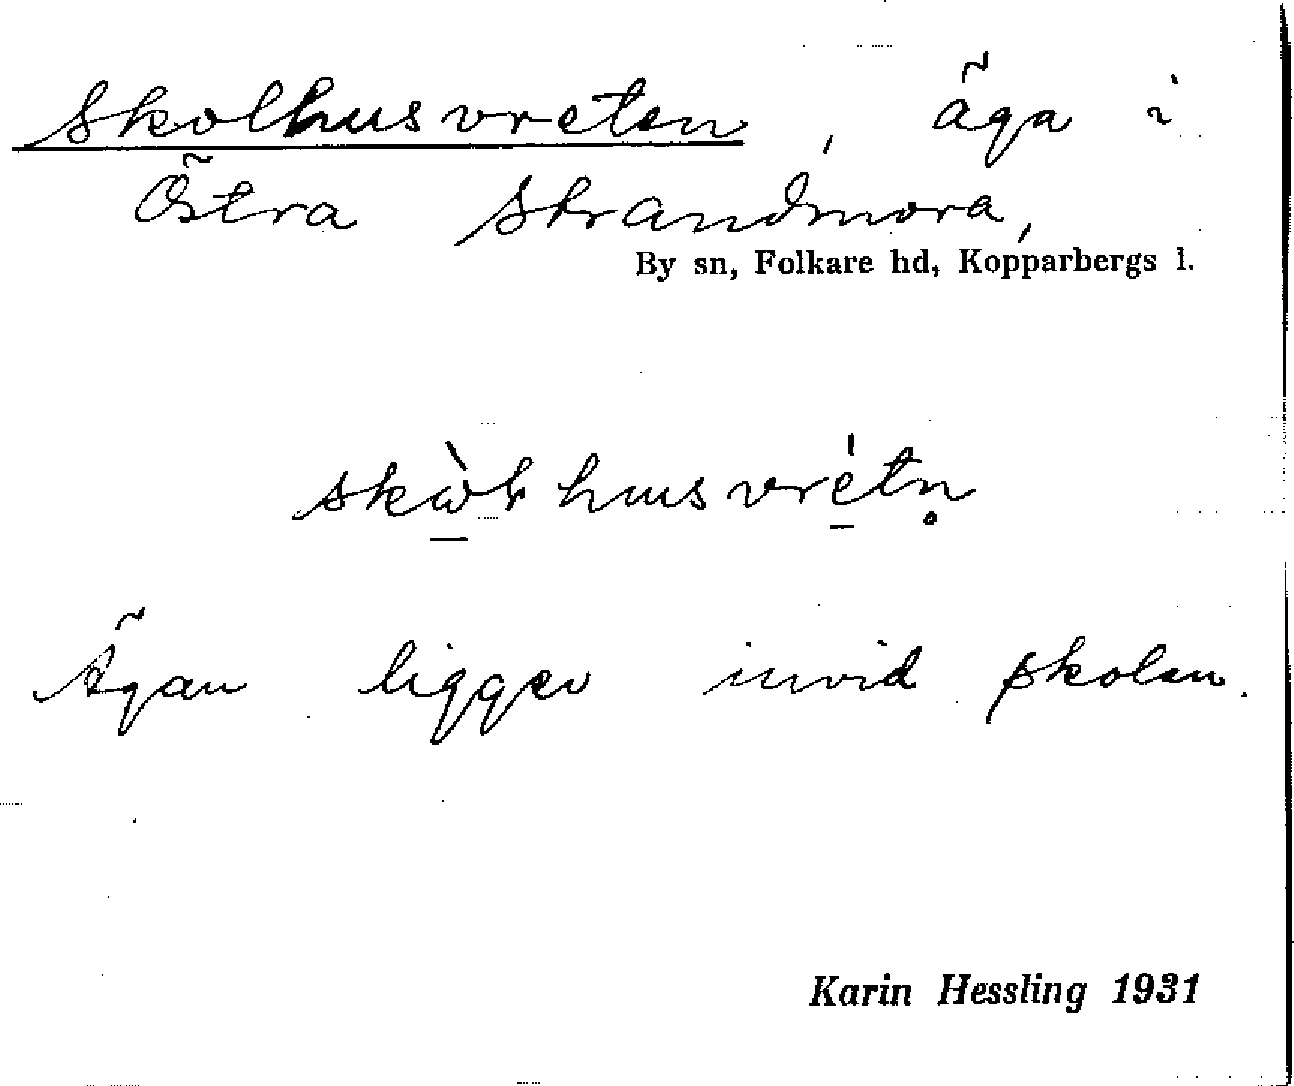 Skolhusvreten, äga i
Östra Strandmora,
By sn, Folkare hd, Kopparbergs l.
husvrétn̥
Ägan ligger invid skolan.
Karin Hessling 1931